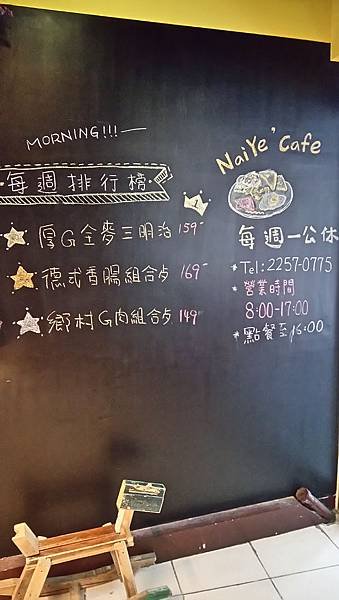 MORNING!!!
每週排行榜
厚G全麥三明治 159-
德式香腸組合点 169-
鄉村G肉組合点 149-
NaiYe' Cafe
每週一公休
*Tel: 2257-0775
*營業時間
8:00-17:00
*點餐至16:00